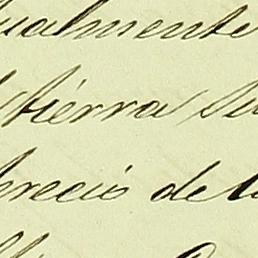 ualmente
tierra su
erecio de l